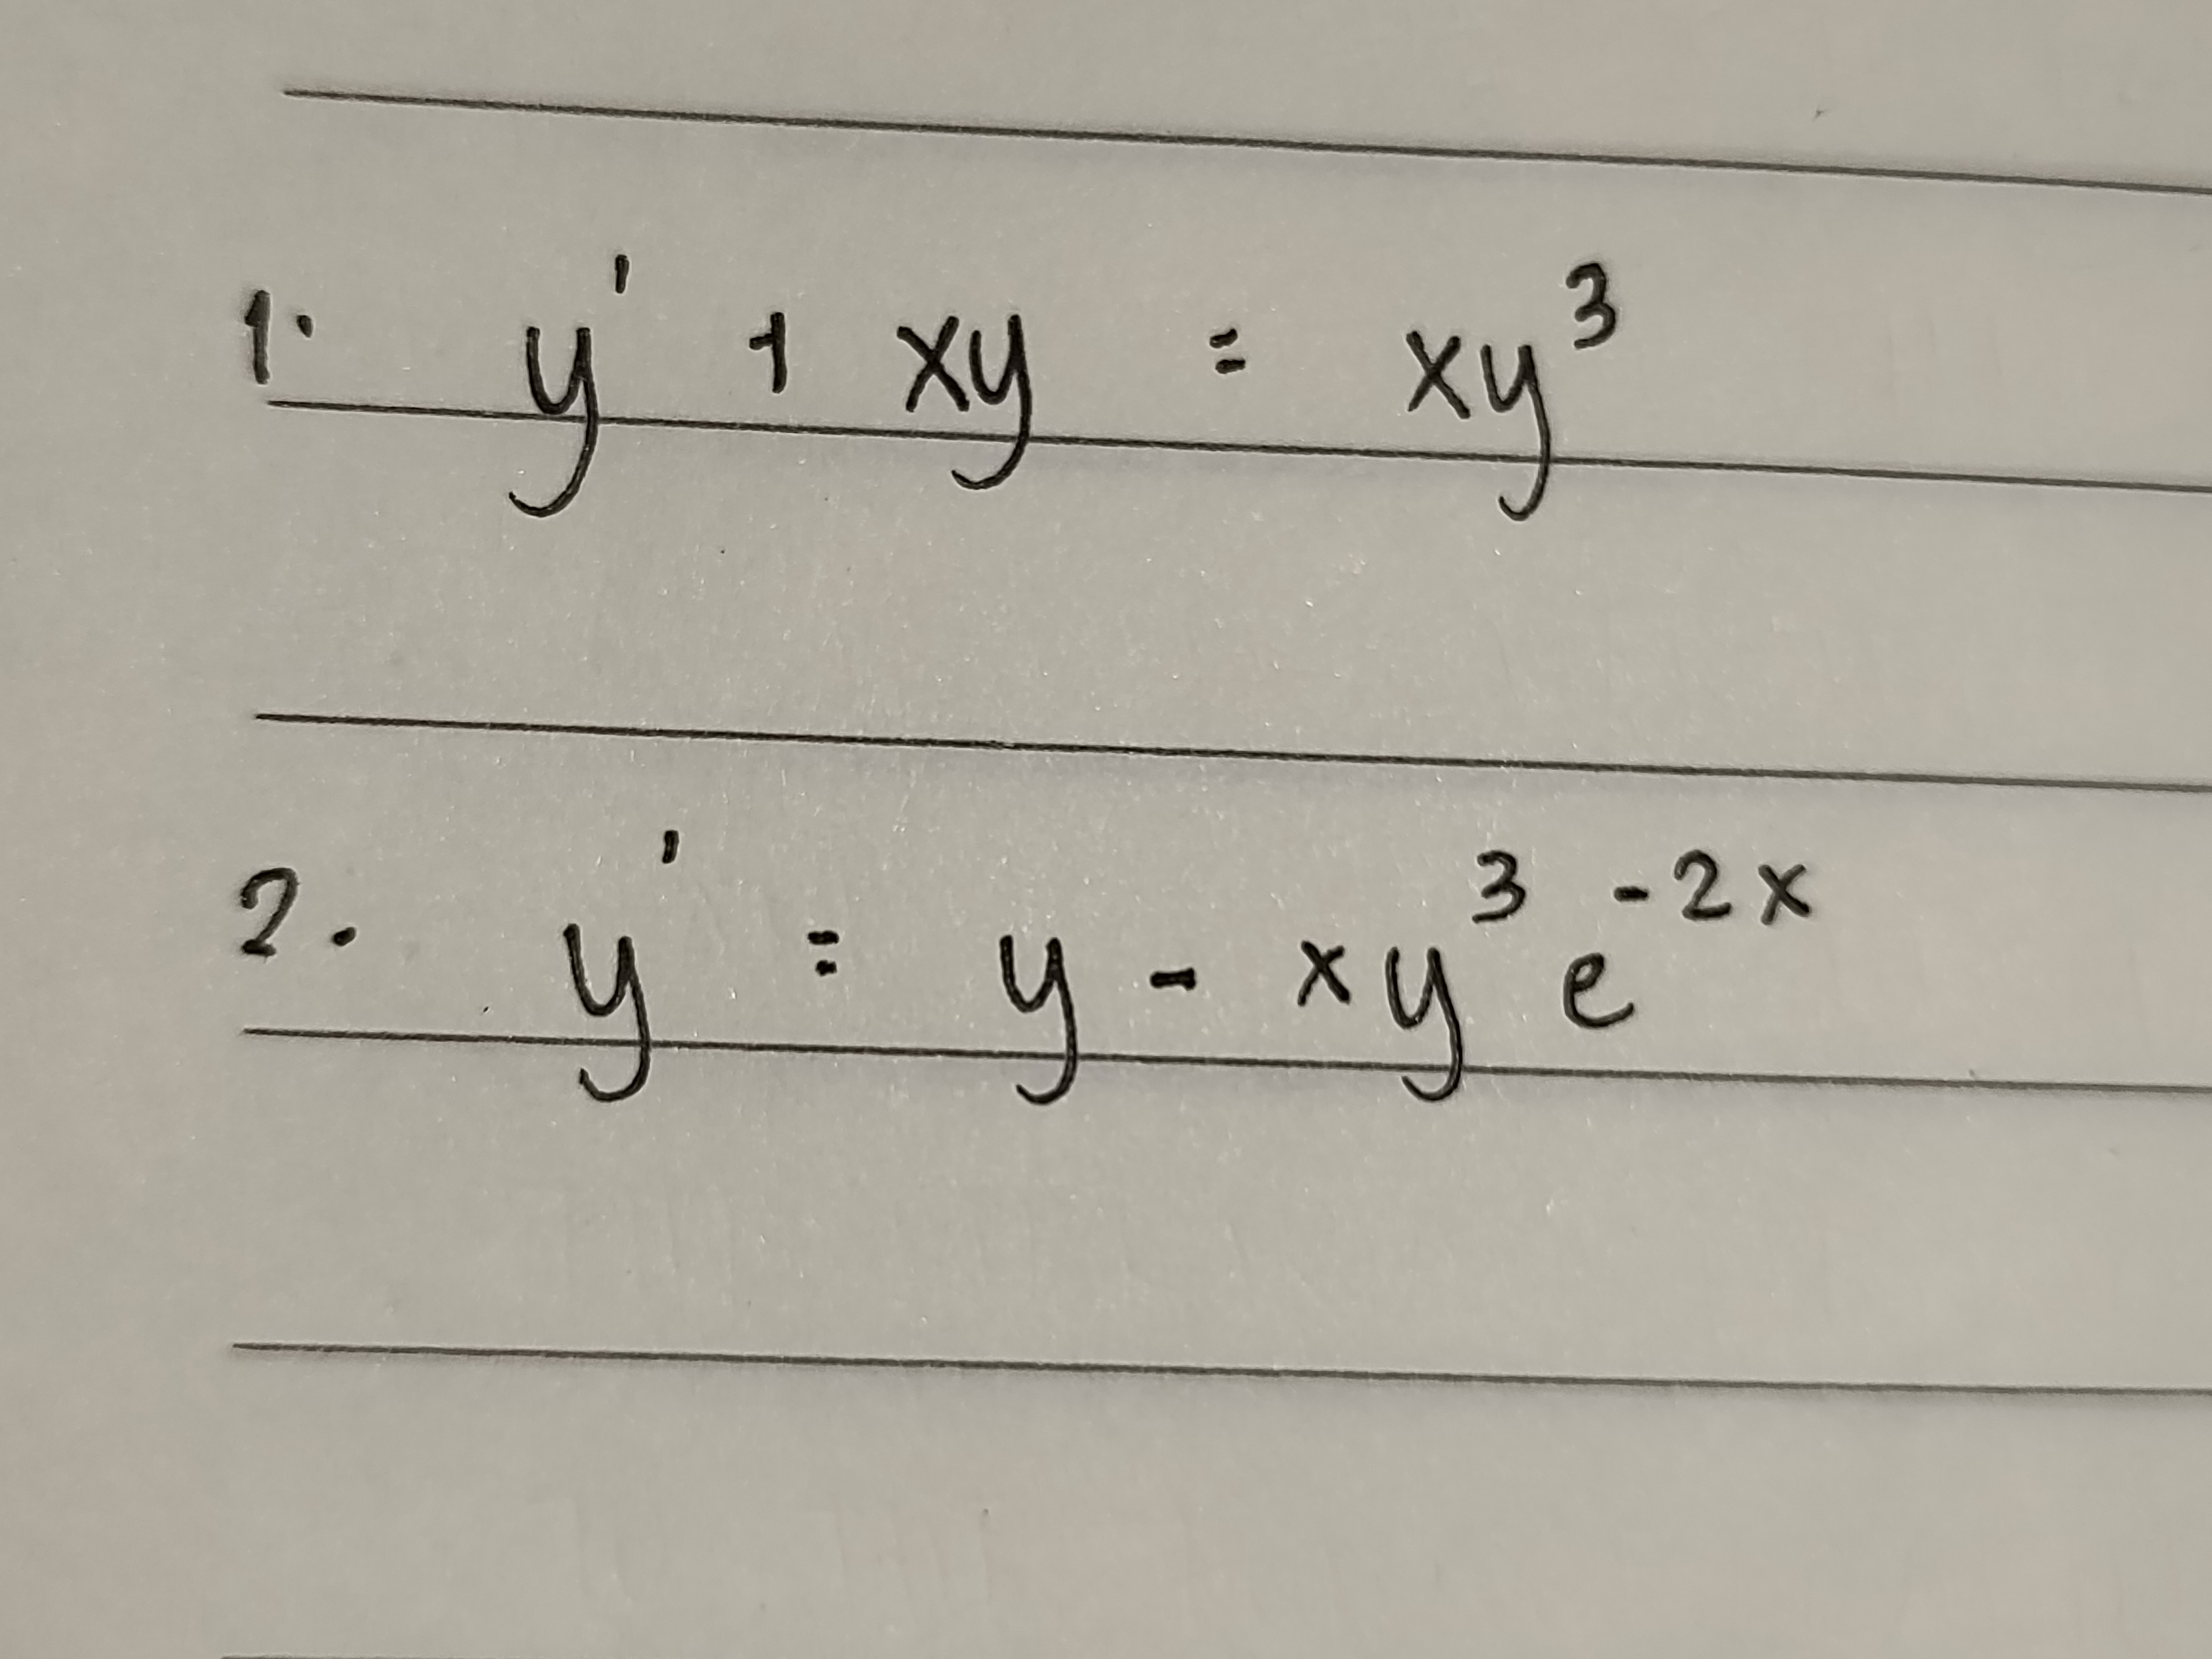 1. y' + xy = xy³
2. y' = y - xy³e⁻²ˣ